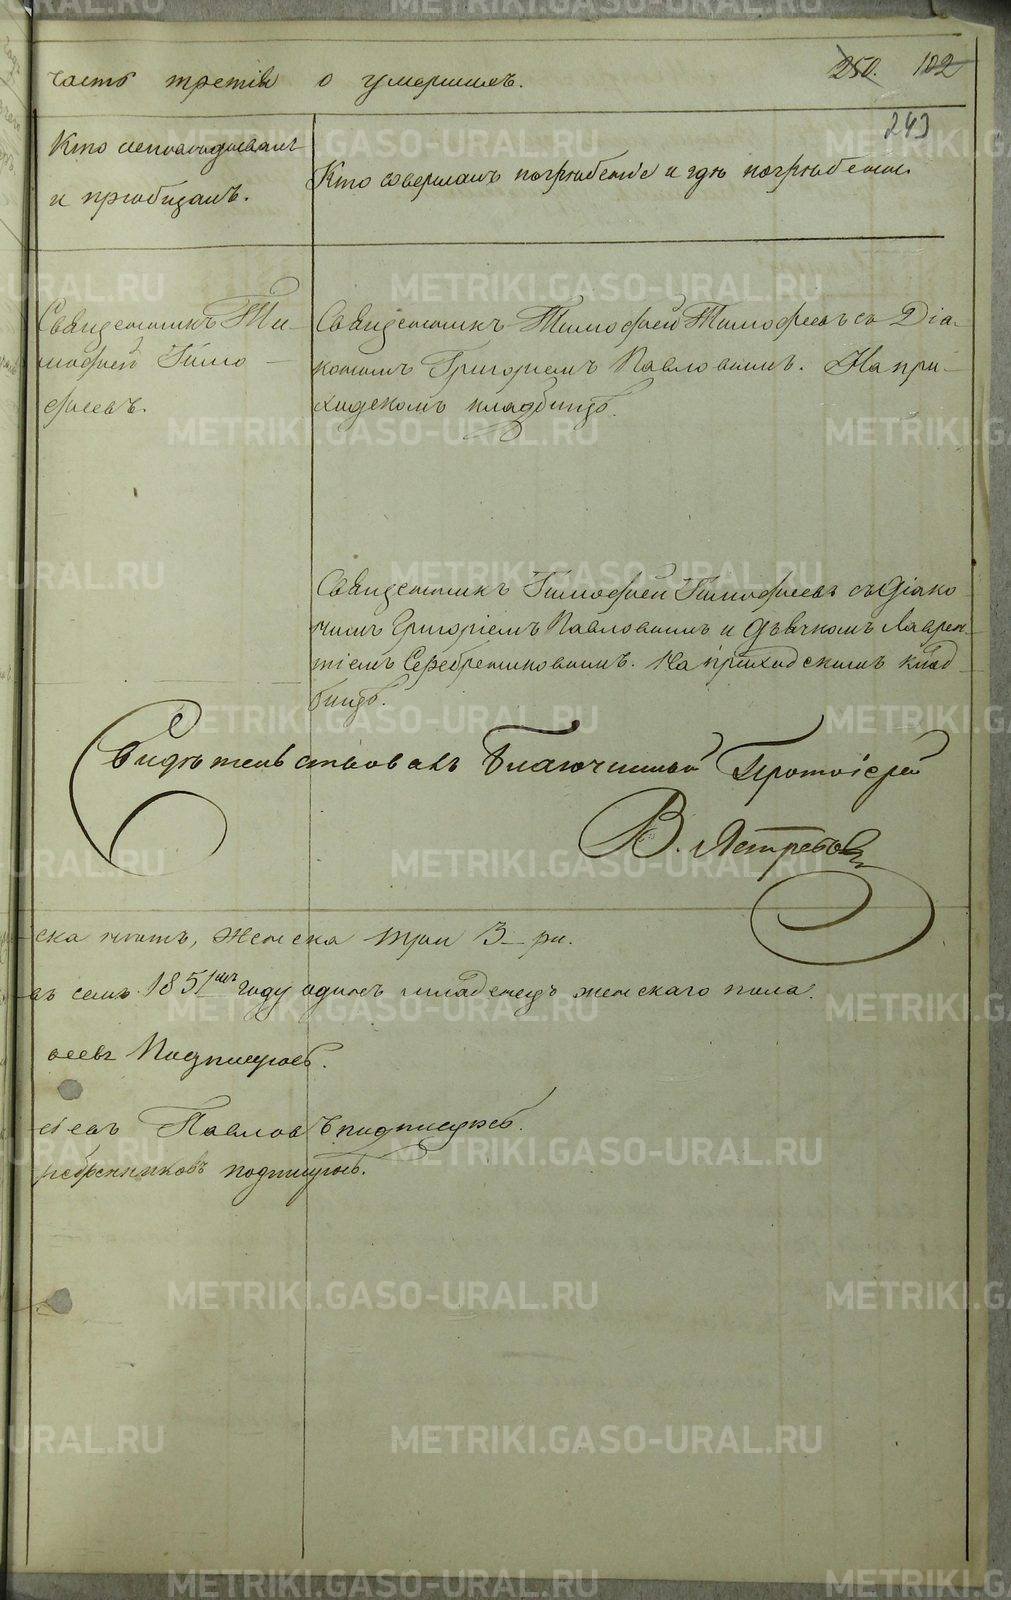 часть третія о умершихъ. 250. 102
243
Кто исповѣдывалъ
и пріобщалъ.
Кто совершалъ погребеніе и гдѣ погребены.
Священникъ Ти-
мофей Тимо-
фѣевъ.
Священникъ Тимофей Тимофеевъ съ Діа-
кономъ Григоріемъ Павловымъ. На при-
ходскомъ кладбищѣ.
Священникъ Тимофей Тимофеевъ съ Діако
номъ Григоріемъ Павловымъ и Дьячкомъ Лаврен-
тіемъ Серебренниковымъ. На приходскомъ клад-
бищѣ.
Свидѣтельствовалъ Благочинный Протоіерей
В. Ястребовъ
ска пять, женска три 3-ри.
въ семъ 1851мъ году одинъ младенецъ женскаго пола.
Подписуюсь.
Павловъ подписуюсь.
ребренниковъ подписуюсь.
METRIKI.GASO-URAL.RU